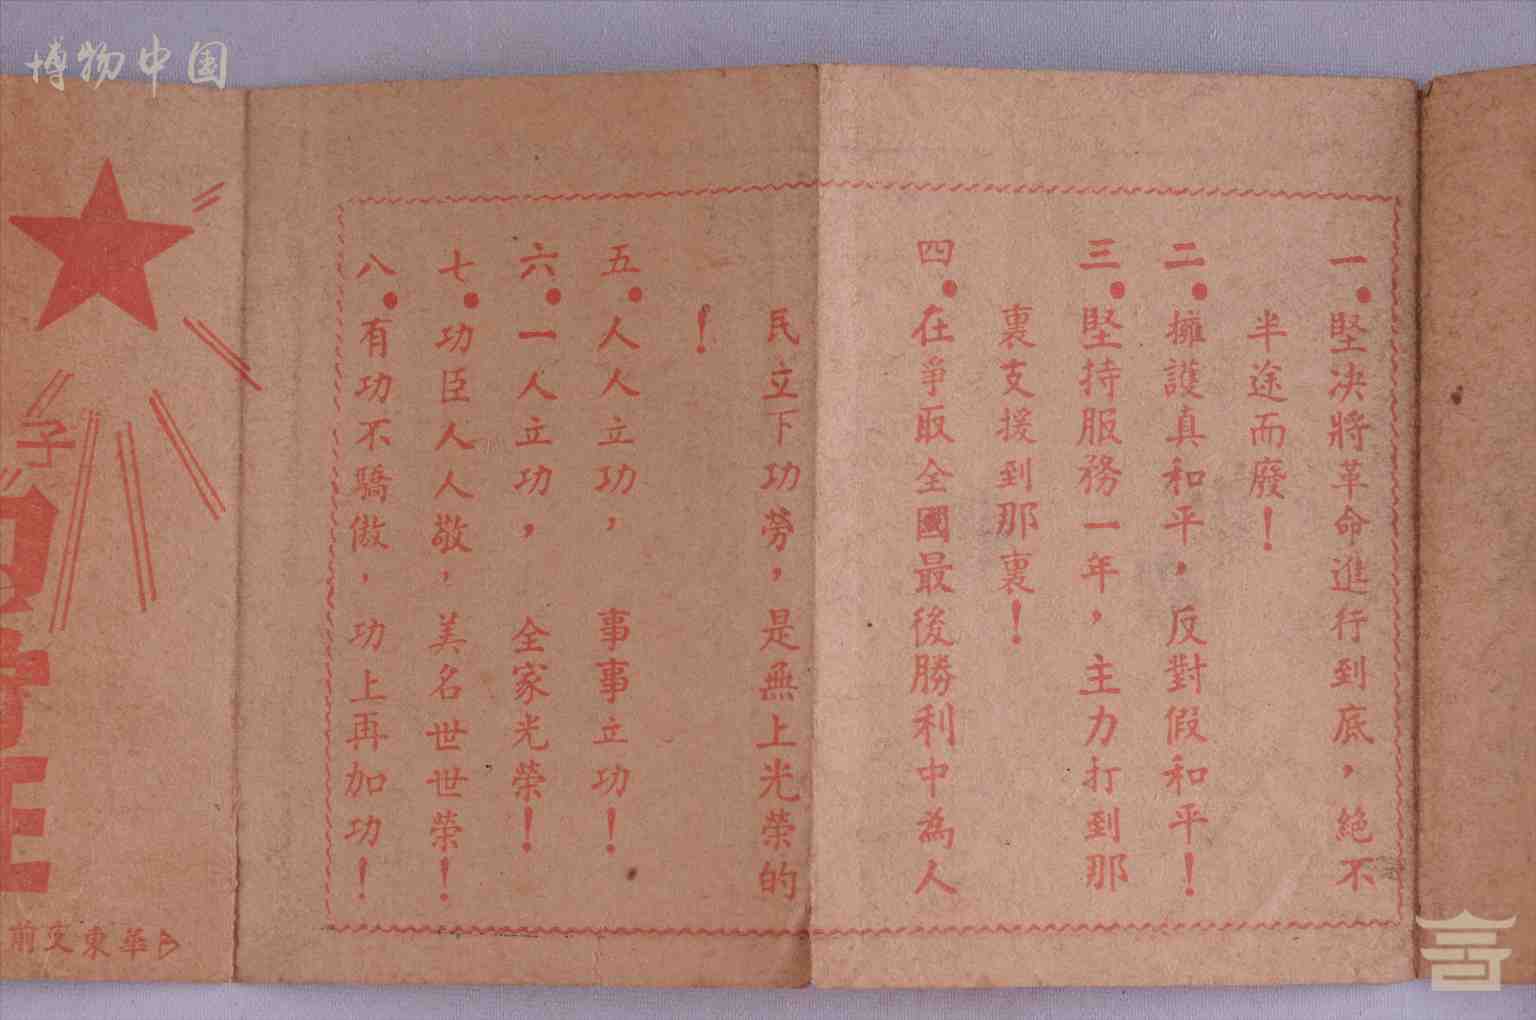 博物中国
一.堅决將革命進行到底，絶不
半途而廢！
二.擁護真和平，反對假和平！
三.堅持服務一年，主力打到那
裏支援到那裏！
四.在爭取全國最後勝利中為人
民立下功勞，是無上光榮的
！
五.人人立功，事事立功！
六.一人立功，全家光榮！
七.功臣人人敬，美名世世榮！
八.有功不驕傲，功上再加功！
子
證
華東支前